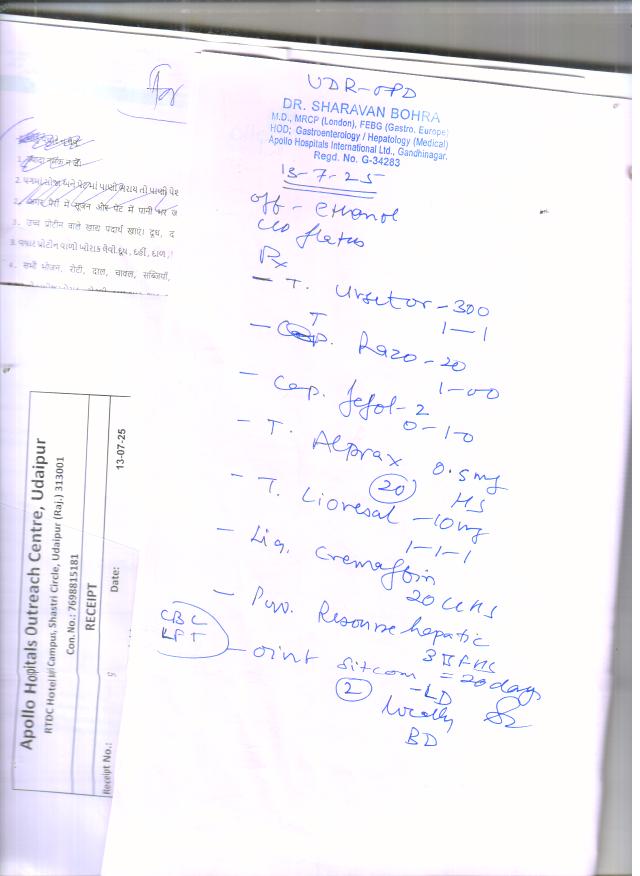 UDR-OPD
DR. SHARAVAN BOHRA
M.D., MRCP (London), FEBG (Gastro. Europe)
HOD; Gastroenterology / Hepatology (Medical)
Apollo Hospitals International Ltd., Gandhinagar.
Regd. No. G-34283
13-7-25
off - ethanol
c/o flatus
Rx
- T. Ursetor - 300
1-1
- T. Razo - 20
1-00
- Cap. Jefol - 2
0-1-0
- T. Alprax 0.5mg
20 HS
- T. Lioresal - 10mg
1-1-1
- Liq. Cremaffin
20 cc HS
- Pow. Resource hepatic
= 20 days
CBC
LFT
- oint Sitcom - LD
2 locally
BD
2. પગમાં સોજા અને પેટમાં પાણી ભરાય તો પ્રાણી પેશ
पैरों में सूजन और पेट में पानी भर ज
3. उच्च प्रोटीन वाले खाद्य पदार्थ खाएं। दूध, द
3. વધારે પ્રોટીન વાળો ખોરાક લેવો દૂધ, દહીં, દાળ,
4. सभी भोजन, रोटी, दाल, चावल, सब्जियाँ,
Apollo Hospitals Outreach Centre, Udaipur
RTDC Hotel Campus, Shastri Circle, Udaipur (Raj.) 313001
Con. No.: 7698815181
RECEIPT
Receipt No.: Date: 13-07-25